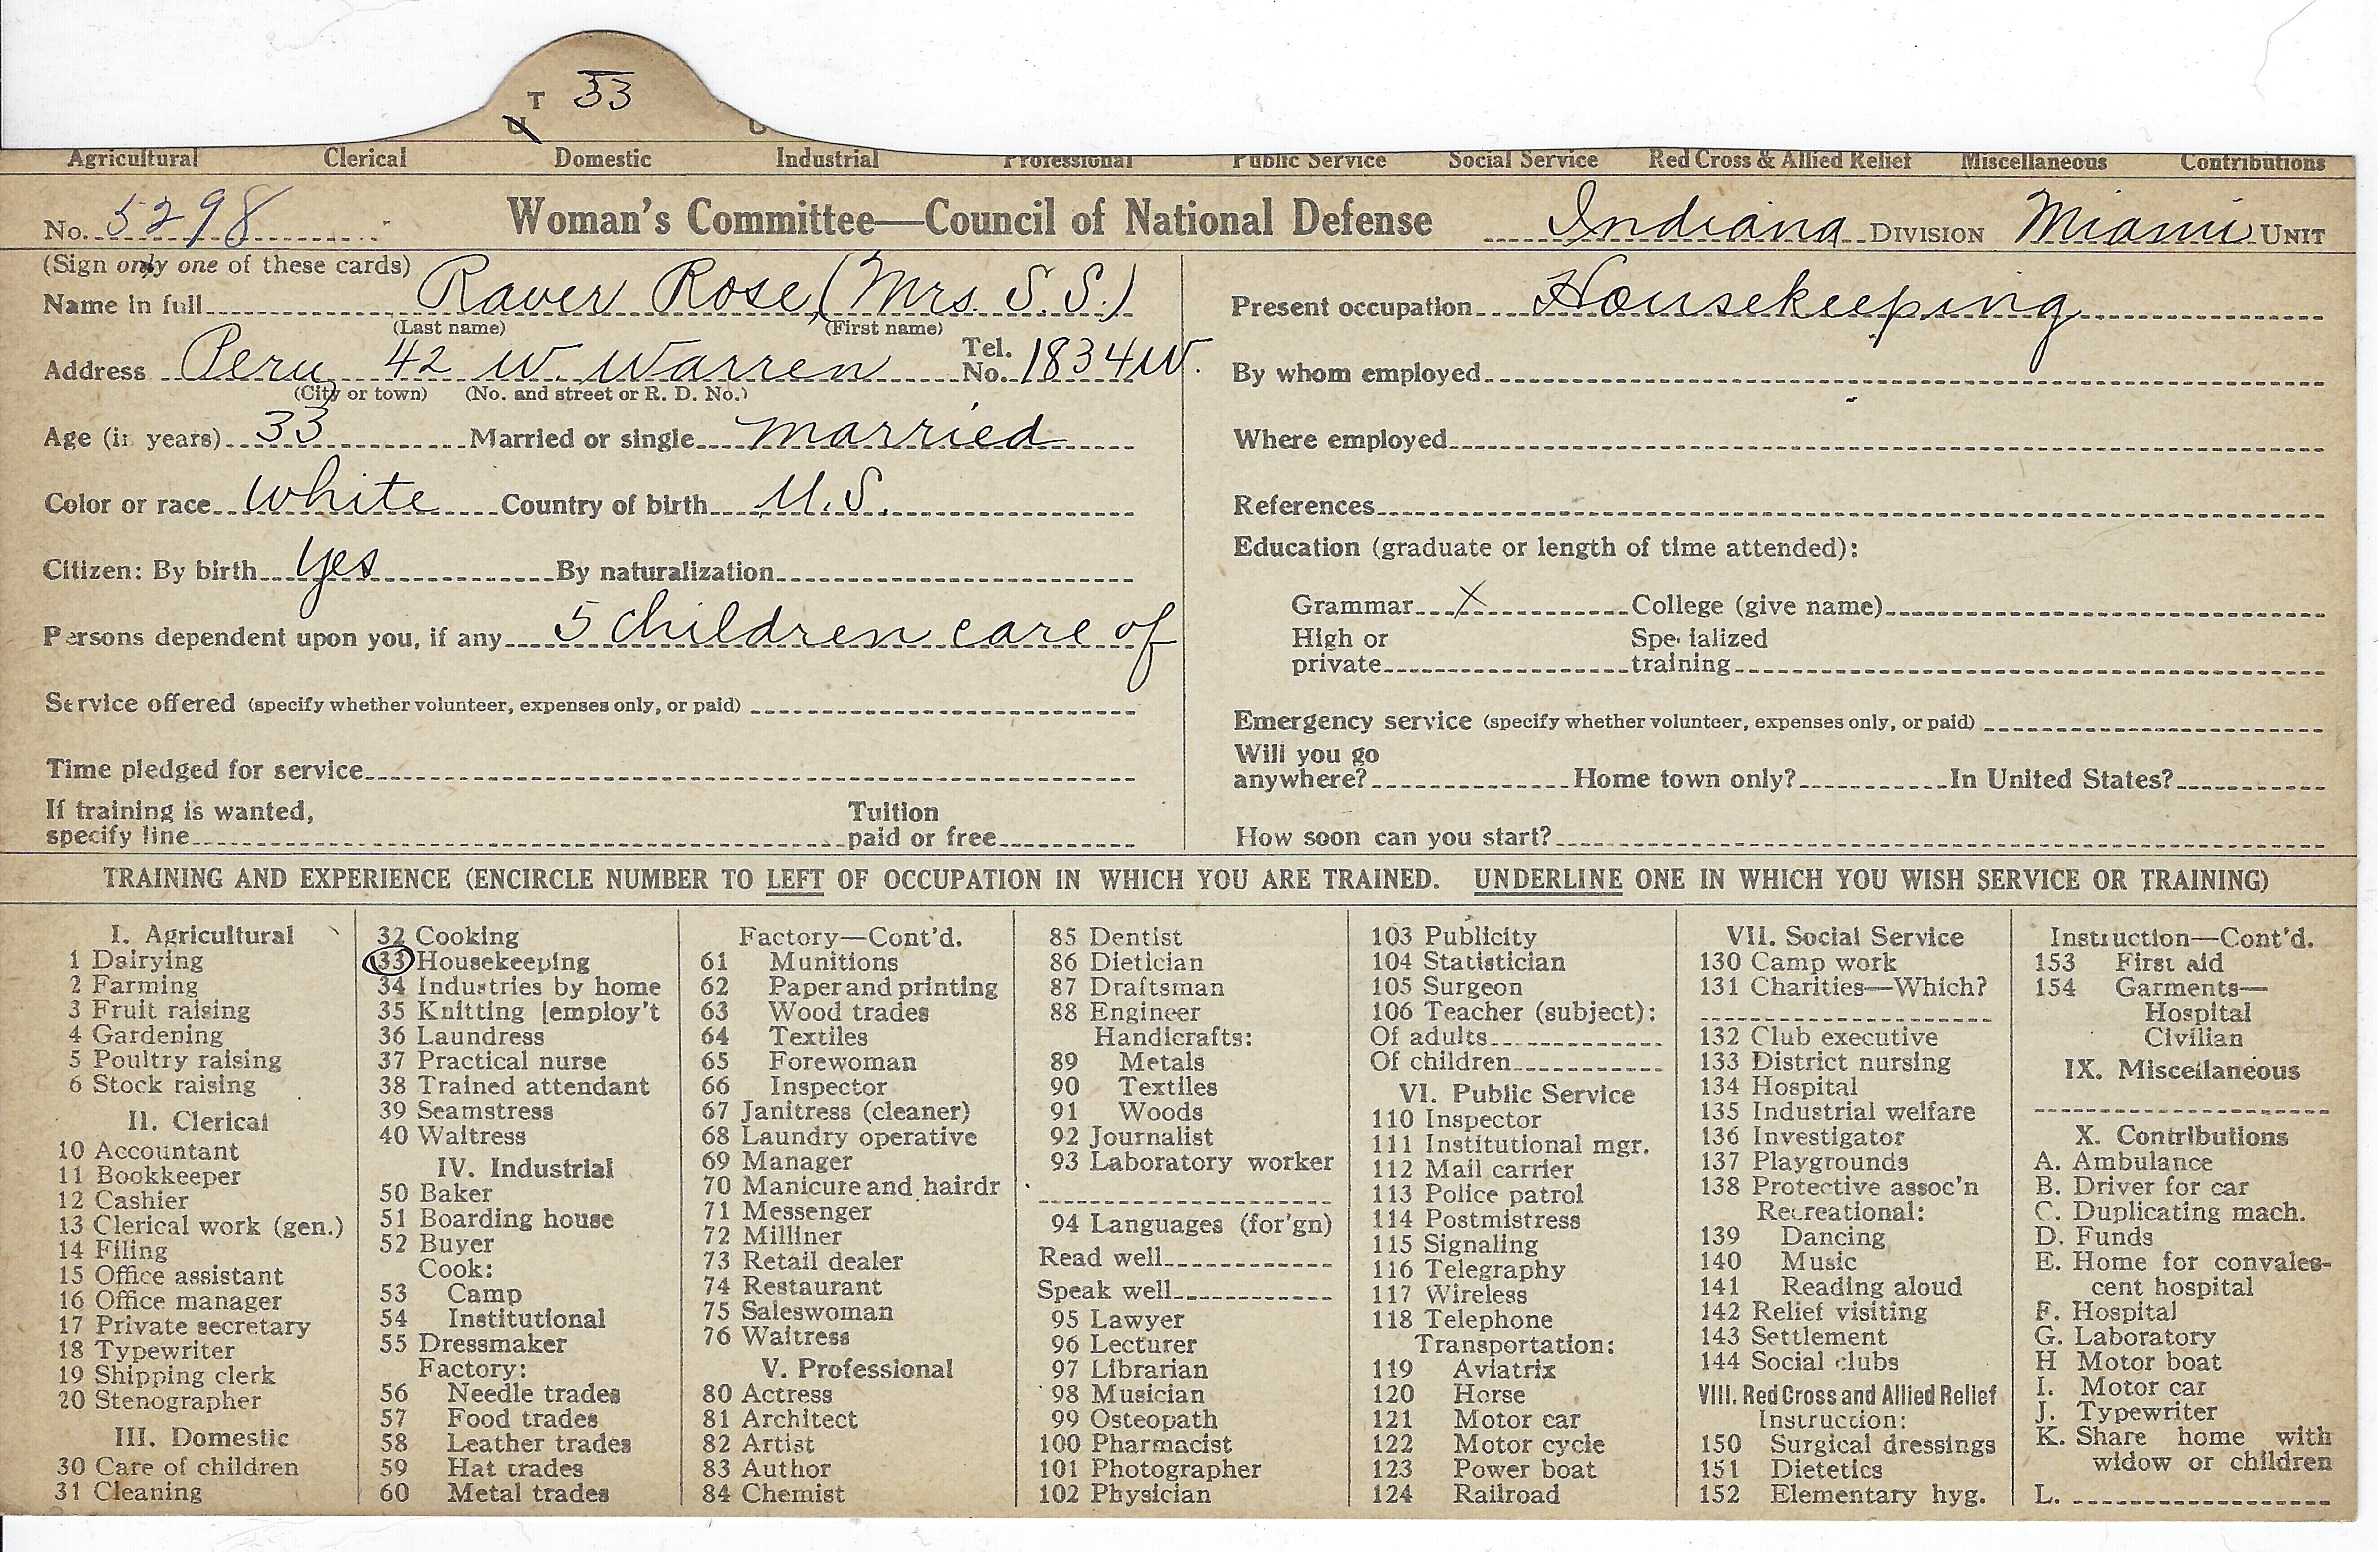 T 33
U U
Agricultural Clerical Domestic Industrial Professional Public Service Social Service Red Cross & Allied Relief Miscellaneous Contributions
No. 5298 Woman's Committee—Council of National Defense Indiana DIVISION Miami UNIT
(Sign only one of these cards)
Name in full Raver Rose, (Mrs. S. S.)
(Last name) (First name)
Address Peru, 42 W. Warren Tel. No. 1834W.
(City or town) (No. and street or R. D. No.)
Age (in years) 33 Married or single married
Color or race white Country of birth U.S.
Citizen: By birth yes By naturalization
Persons dependent upon you, if any 5 children care of
Service offered (specify whether volunteer, expenses only, or paid)
Time pledged for service
If training is wanted, specify line Tuition paid or free
Present occupation Housekeeping
By whom employed
Where employed
References
Education (graduate or length of time attended):
Grammar X College (give name)
High or private Specialized training
Emergency service (specify whether volunteer, expenses only, or paid)
Will you go anywhere? Home town only? In United States?
How soon can you start?
TRAINING AND EXPERIENCE (ENCIRCLE NUMBER TO LEFT OF OCCUPATION IN WHICH YOU ARE TRAINED. UNDERLINE ONE IN WHICH YOU WISH SERVICE OR TRAINING)
I. Agricultural
1 Dairying
2 Farming
3 Fruit raising
4 Gardening
5 Poultry raising
6 Stock raising
II. Clerical
10 Accountant
11 Bookkeeper
12 Cashier
13 Clerical work (gen.)
14 Filing
15 Office assistant
16 Office manager
17 Private secretary
18 Typewriter
19 Shipping clerk
20 Stenographer
III. Domestic
30 Care of children
31 Cleaning
32 Cooking
33 Housekeeping
34 Industries by home
35 Knitting [employ't
36 Laundress
37 Practical nurse
38 Trained attendant
39 Seamstress
40 Waitress
IV. Industrial
50 Baker
51 Boarding house
52 Buyer
Cook:
53 Camp
54 Institutional
55 Dressmaker
Factory:
56 Needle trades
57 Food trades
58 Leather trades
59 Hat trades
60 Metal trades
Factory—Cont'd.
61 Munitions
62 Paper and printing
63 Wood trades
64 Textiles
65 Forewoman
66 Inspector
67 Janitress (cleaner)
68 Laundry operative
69 Manager
70 Manicure and hairdr
71 Messenger
72 Milliner
73 Retail dealer
74 Restaurant
75 Saleswoman
76 Waitress
V. Professional
80 Actress
81 Architect
82 Artist
83 Author
84 Chemist
85 Dentist
86 Dietician
87 Draftsman
88 Engineer
Handicrafts:
89 Metals
90 Textiles
91 Woods
92 Journalist
93 Laboratory worker
94 Languages (for'gn)
Read well
Speak well
95 Lawyer
96 Lecturer
97 Librarian
98 Musician
99 Osteopath
100 Pharmacist
101 Photographer
102 Physician
103 Publicity
104 Statistician
105 Surgeon
106 Teacher (subject):
Of adults
Of children
VI. Public Service
110 Inspector
111 Institutional mgr.
112 Mail carrier
113 Police patrol
114 Postmistress
115 Signaling
116 Telegraphy
117 Wireless
118 Telephone
Transportation:
119 Aviatrix
120 Horse
121 Motor car
122 Motor cycle
123 Power boat
124 Railroad
VII. Social Service
130 Camp work
131 Charities—Which?
132 Club executive
133 District nursing
134 Hospital
135 Industrial welfare
136 Investigator
137 Playgrounds
138 Protective assoc'n
Recreational:
139 Dancing
140 Music
141 Reading aloud
142 Relief visiting
143 Settlement
144 Social clubs
VIII. Red Cross and Allied Relief
Instruction:
150 Surgical dressings
151 Dietetics
152 Elementary hyg.
Instruction—Cont'd.
153 First aid
154 Garments—
Hospital
Civilian
IX. Miscellaneous
X. Contributions
A. Ambulance
B. Driver for car
C. Duplicating mach.
D. Funds
E. Home for convales-
cent hospital
F. Hospital
G. Laboratory
H Motor boat
I. Motor car
J. Typewriter
K. Share home with
widow or children
L.